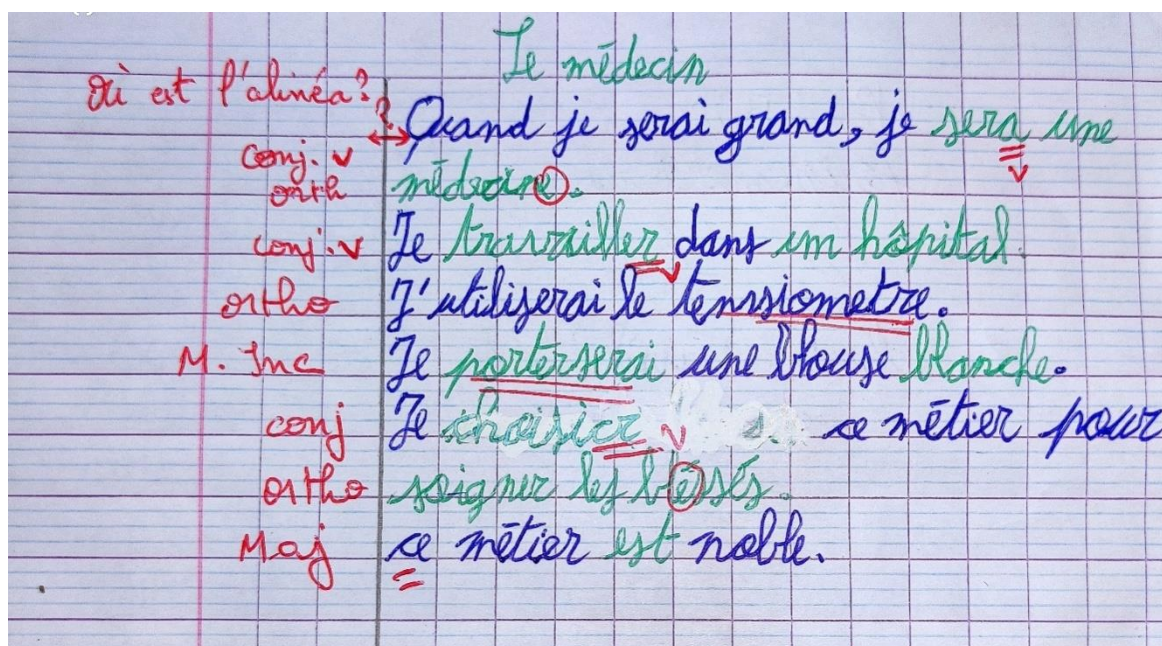 Le médecin
Où est l'alinéa?
? Quand je serai grand, je sera une
conj. v
orth médecine.
conj. v Je travailler dans um hôpital.
ortho J'utiliserai le tenssiometre.
M. Inc Je porterserai une blouse blanche.
conj Je choisicr ce métier pour
ortho soigner les blésés.
Maj ce métier est noble.